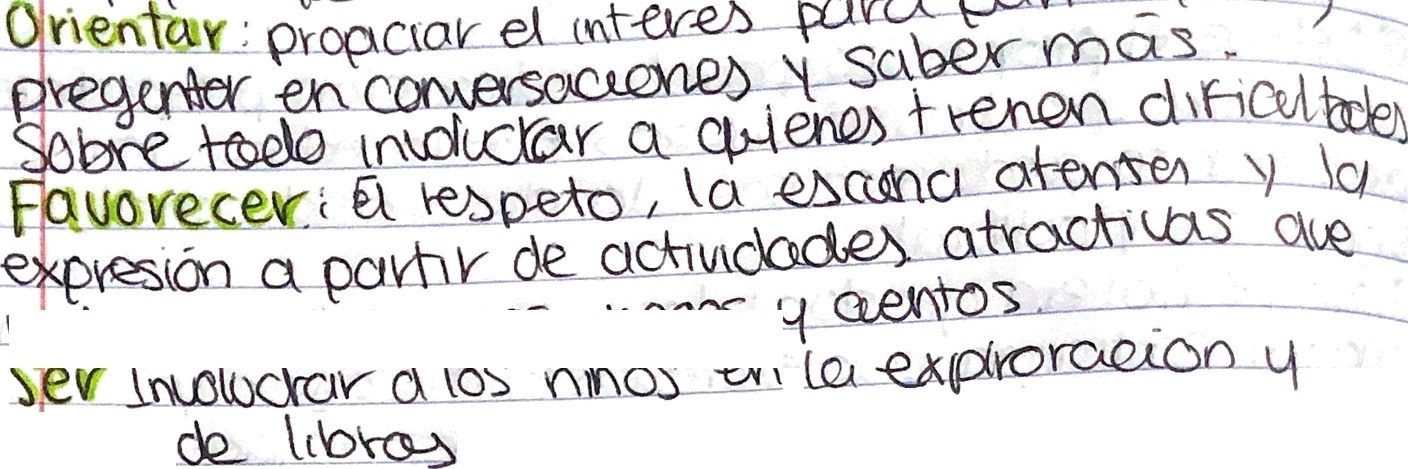 Orientar: propiciar el interes para
pregenter en conversaciones y saber más.
Sobre todo involucrar a quienes tienen dificultades
Favorecer: El respeto, la escucha atenta y la
expresión a partir de actividades atractivas que
y cuentos.
ser involucrar a los niños en la exploracion y
de libros